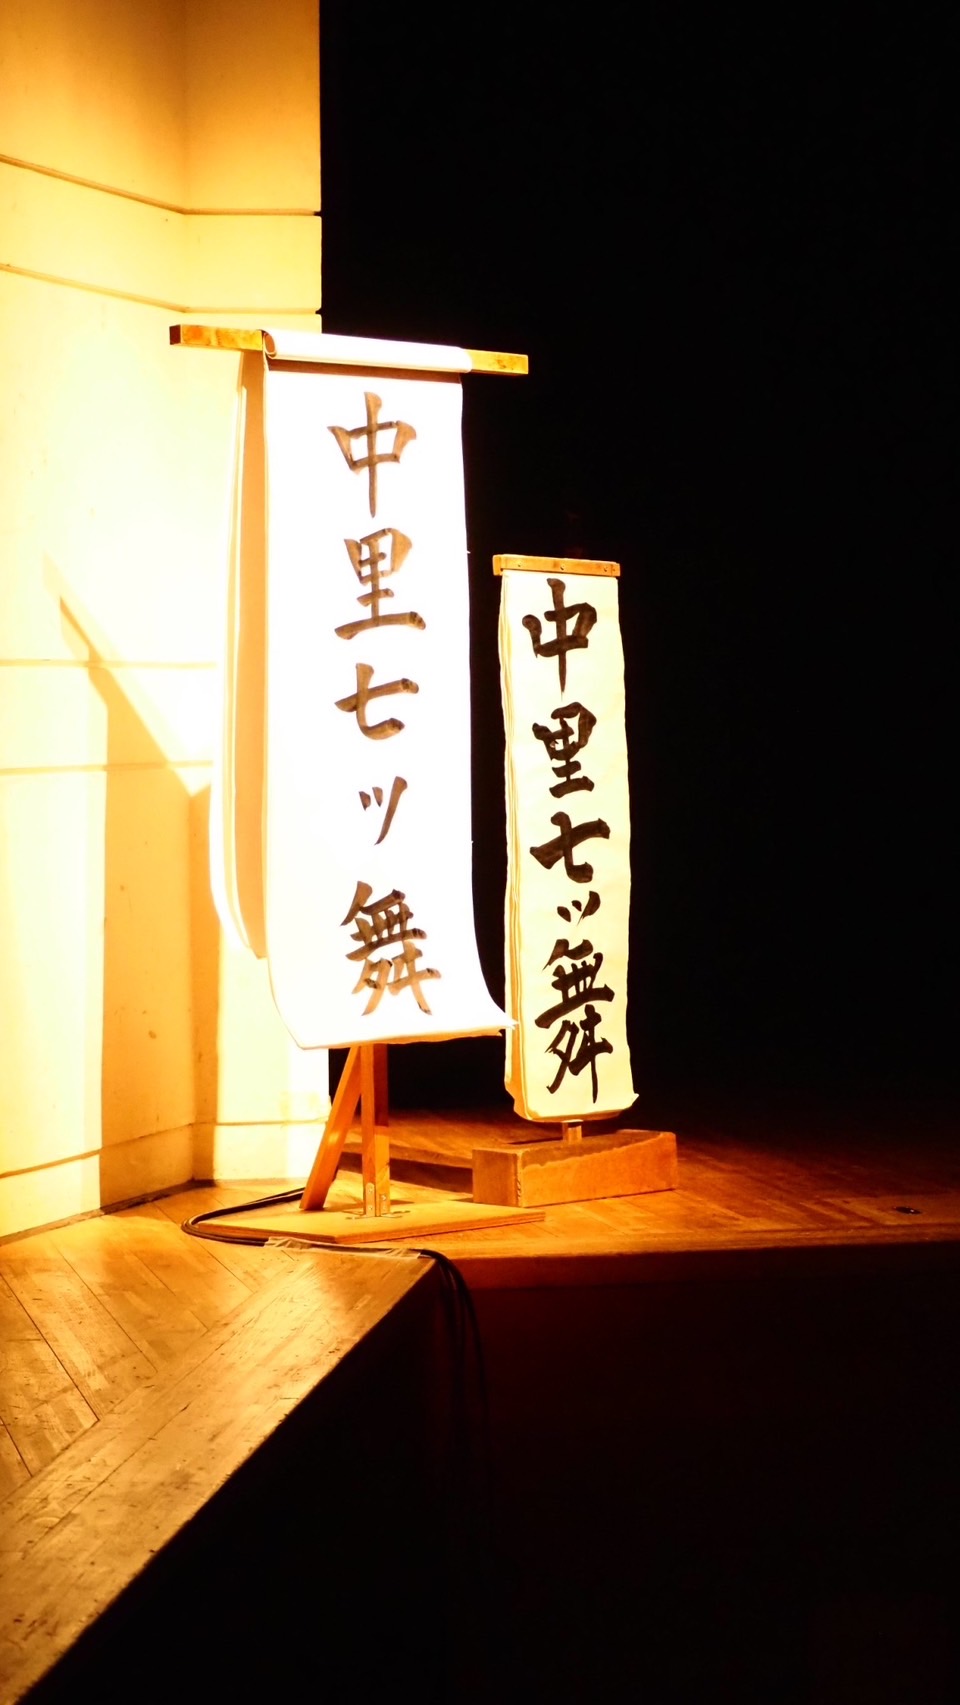 中里七ッ舞
中里七ッ舞